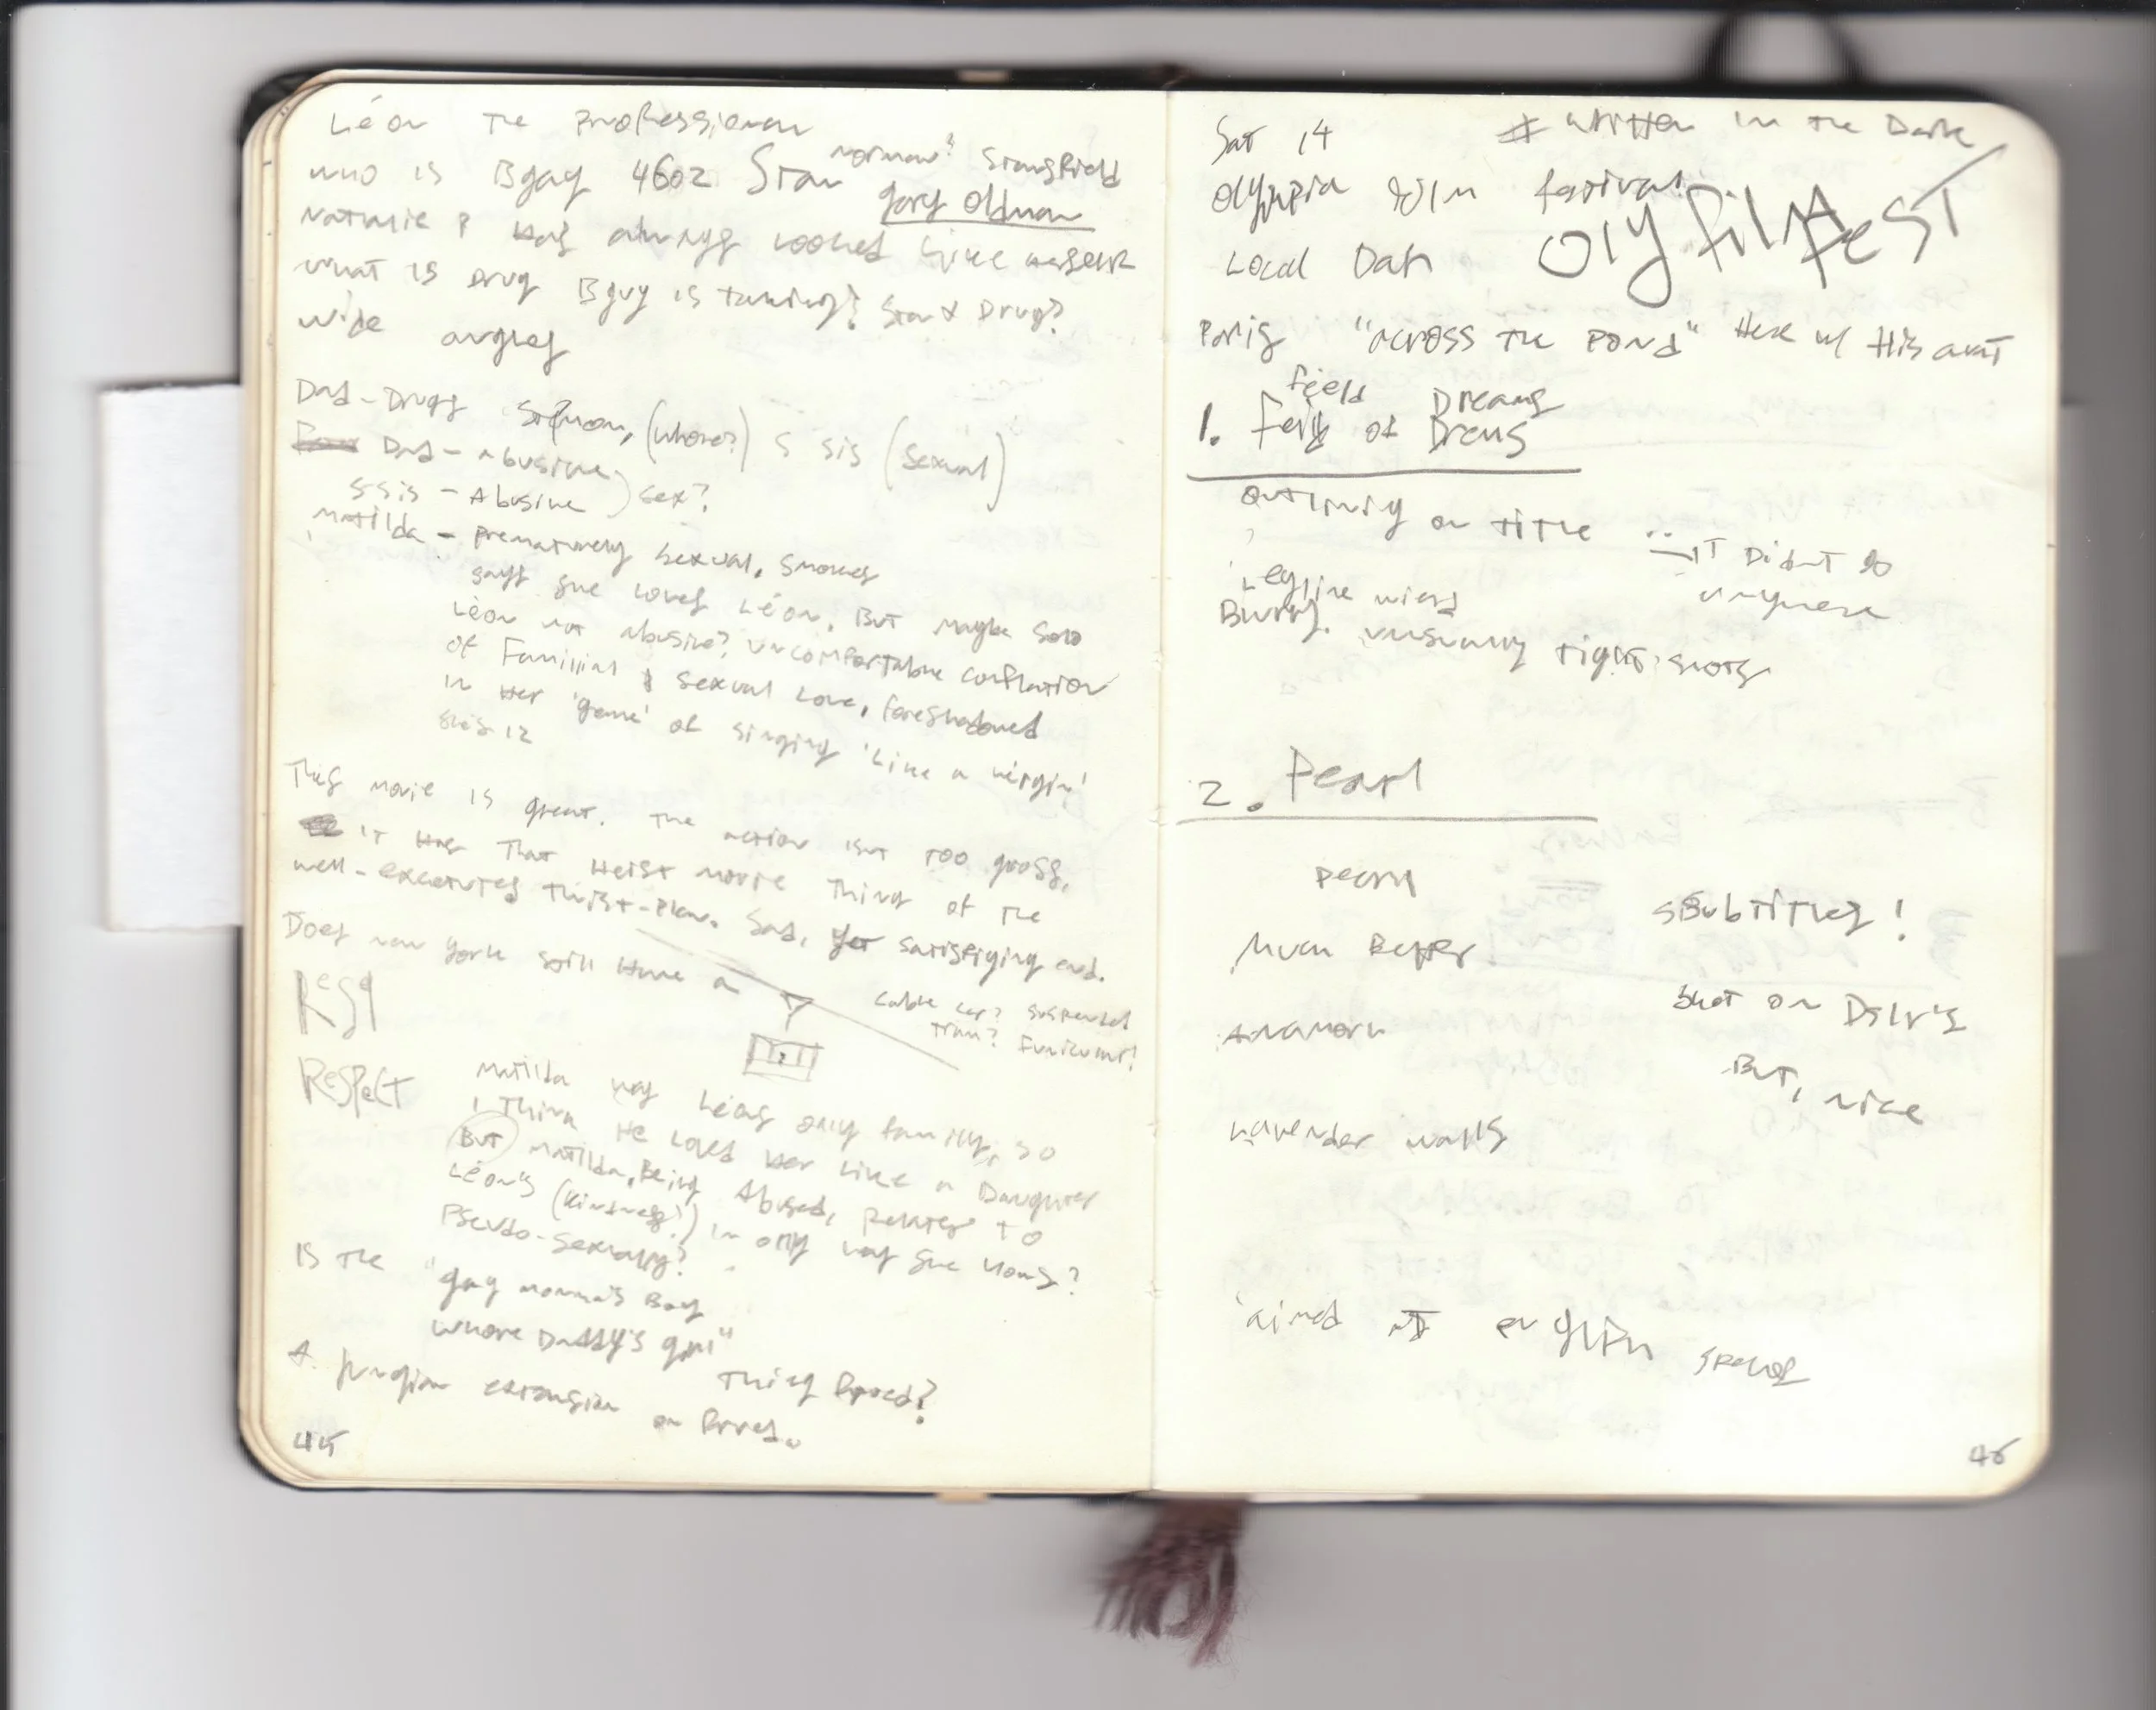 Léon The Professional
who is Bguy 4602 Stan Norman? Stansfield
gary oldman
Natalie P has always looked like herself
what is drug Bguy is taking? Stan & Drug?
wide angles
Dad - Drugs Stepmom, (whore?) S sis (sexual)
Dad - abusive
S sis - Abusive ) sex?
Matilda - prematurely sexual, smokes
says she loves Léon, But maybe
Léon not abusive? uncomfortable conflation
of Familial & sexual Love, foreshadowed
in her 'game' of singing 'Like a virgin'
she's 12
This movie is great. The action isn't too gross,
it has that Heist movie thing of the
well-executed twist-plan. Sad, yet satisfying end.
Does new york still have a
cable car? suspended
tram? Funicular?
Resp
Respect
Matilda was Léons only family, so
I think He loved her like a Daughter
But Matilda, Being Abused, relates to
Léon's (kindness?) in only way she knows?
Pseudo-sexually?
Is the "gay momma's Boy
whore Daddy's girl"
thing
A jungian extension on
45
Sat 14 # written in the Dark
Olympia film festival
Oly film fest
Local Day
Paris "across the pond" Here w/
1. Field of Dreams
field Dreams
outlining on title
IT Didnt go
anywhere
weird
Blurry. unusually tight shots
2. Pearl
Pearl
Subtitles!
Much Better
Shot on Dslr's
But, nice
Lavender walls
aimed at english
46